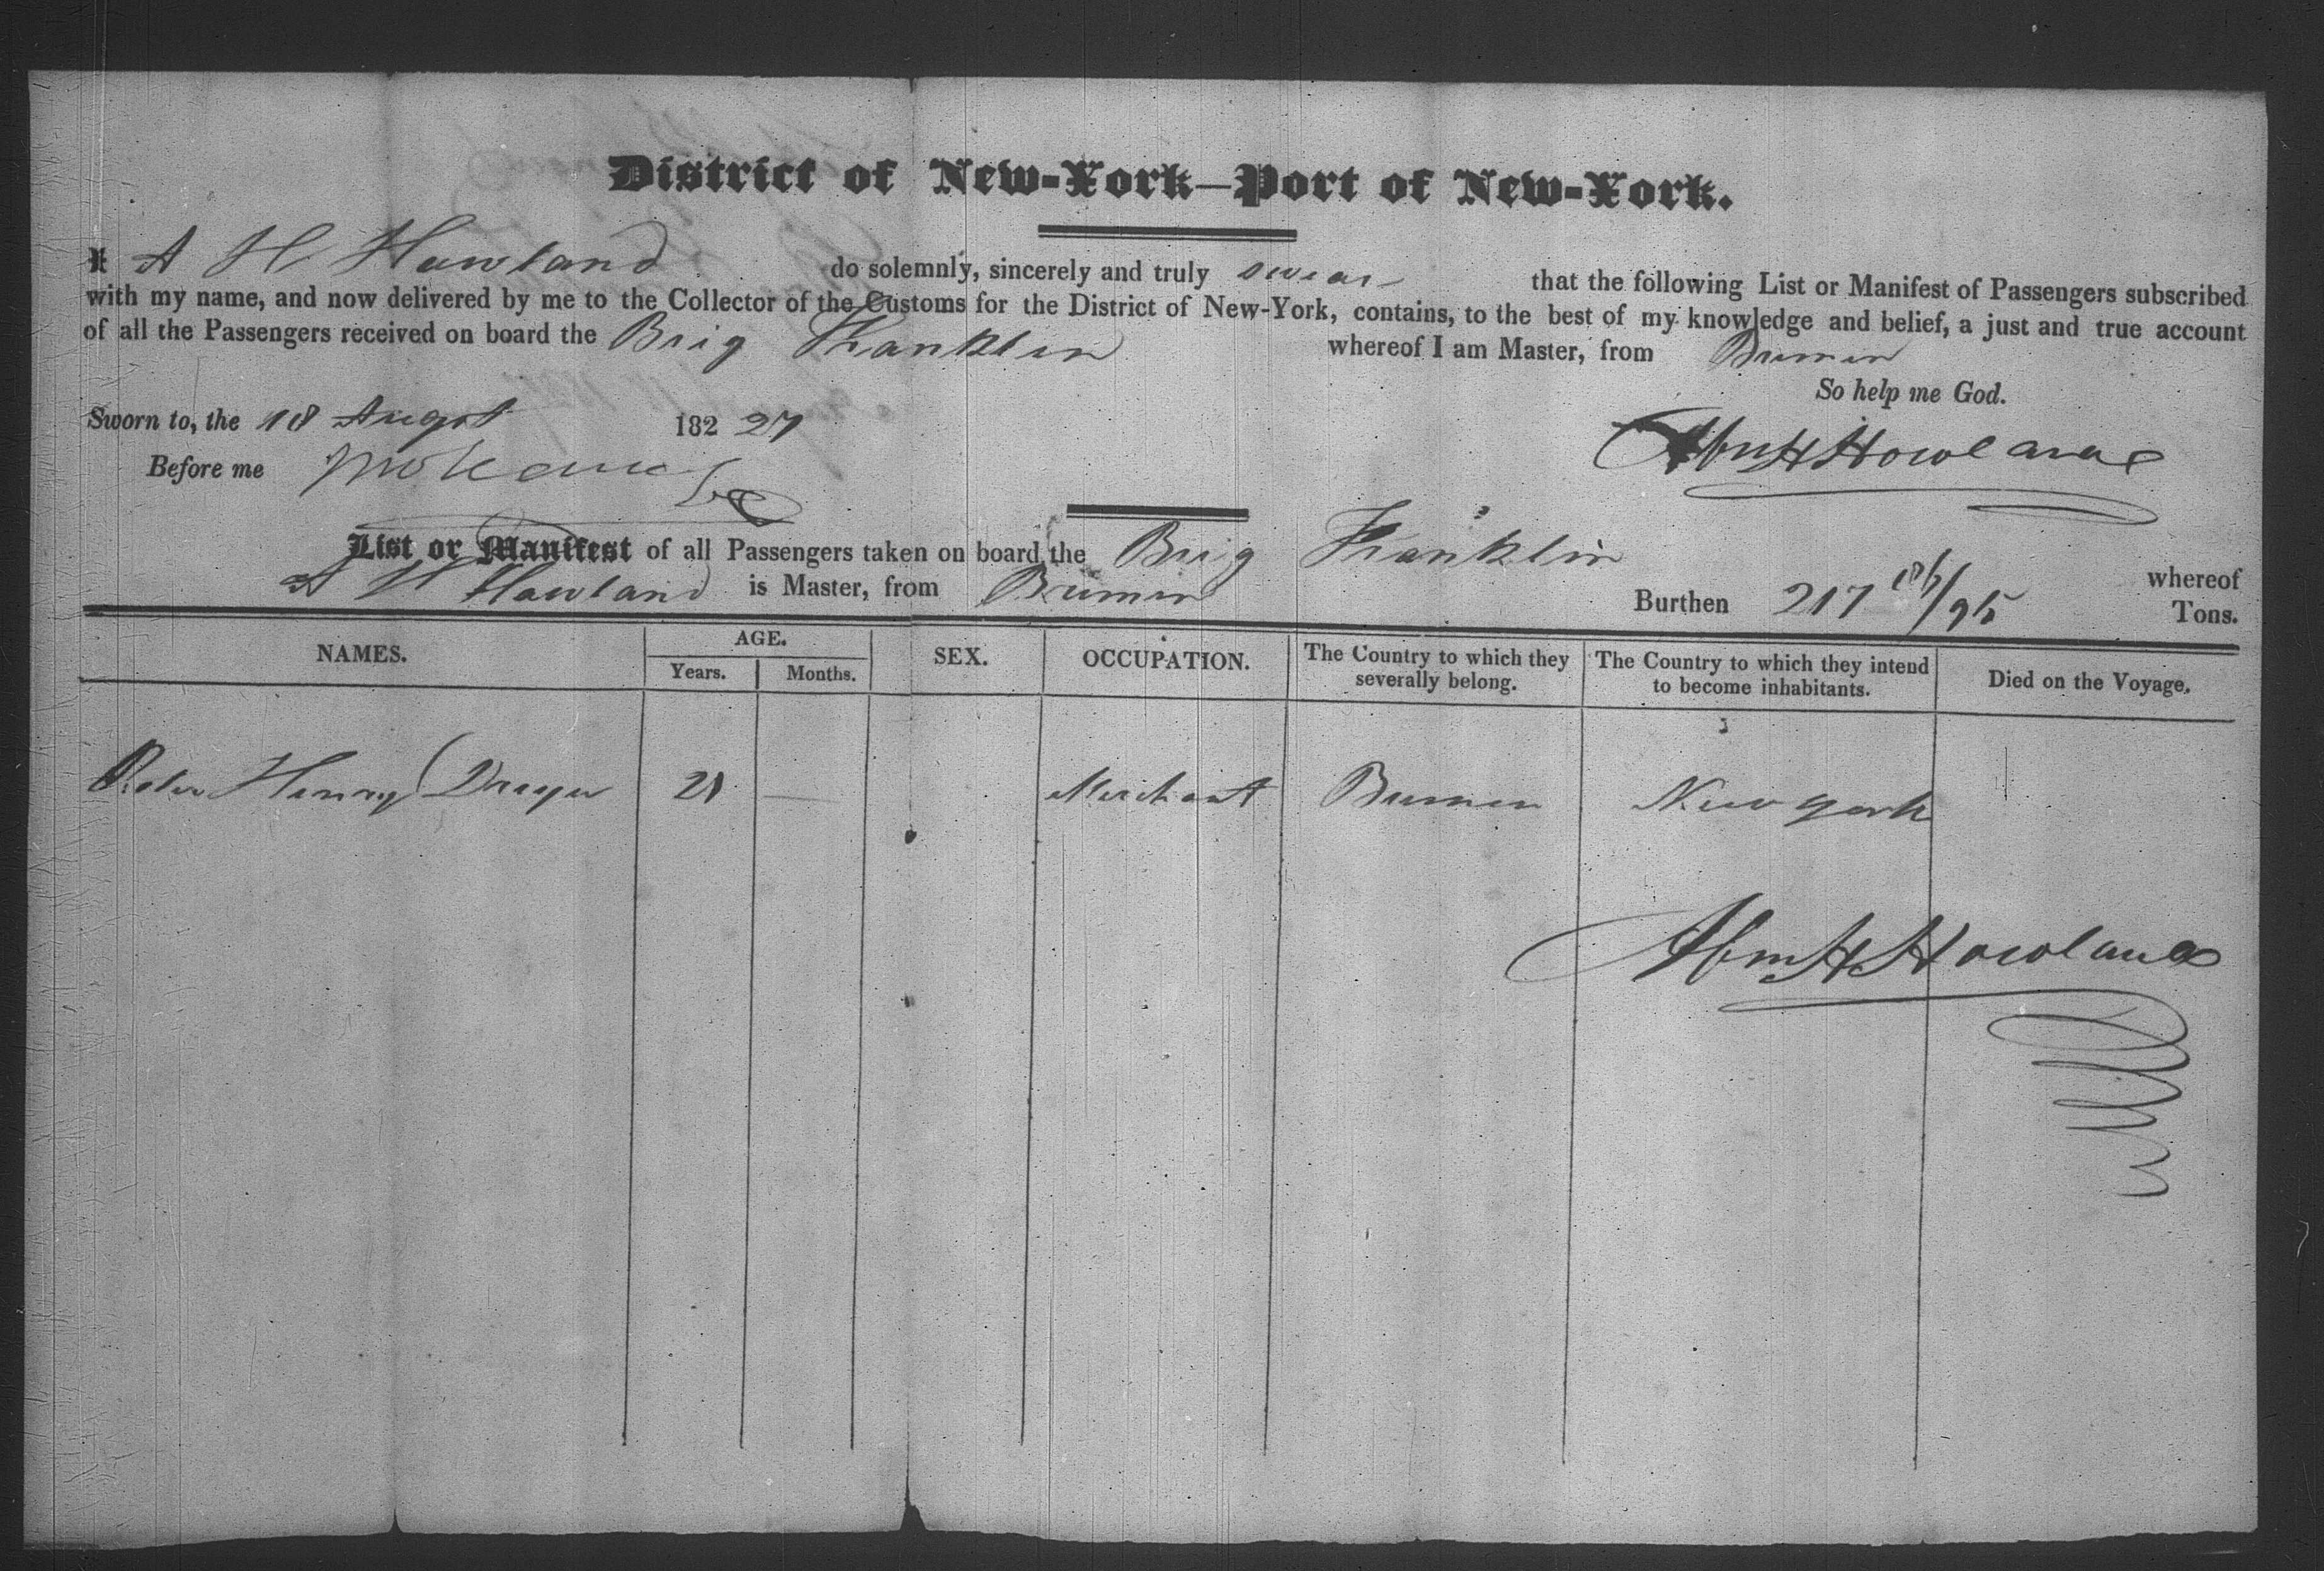 District of New-York—Port of New-York.
I A H Howland do solemnly, sincerely and truly swear that the following List or Manifest of Passengers subscribed
with my name, and now delivered by me to the Collector of the Customs for the District of New-York, contains, to the best of my knowledge and belief, a just and true account
of all the Passengers received on board the Brig Franklin whereof I am Master, from Bremen
So help me God.
Sworn to, the 18 Augst 182 27
Before me
Abm H Howland
List or Manifest of all Passengers taken on board the Brig Franklin whereof
A H Howland is Master, from Bremen Burthen 217 /95 Tons.
NAMES. AGE. SEX. OCCUPATION. The Country to which they severally belong. The Country to which they intend to become inhabitants. Died on the Voyage.
Years. Months.
Henry Dreyer 21 — Merchant Bremen New york
Abm H Howland